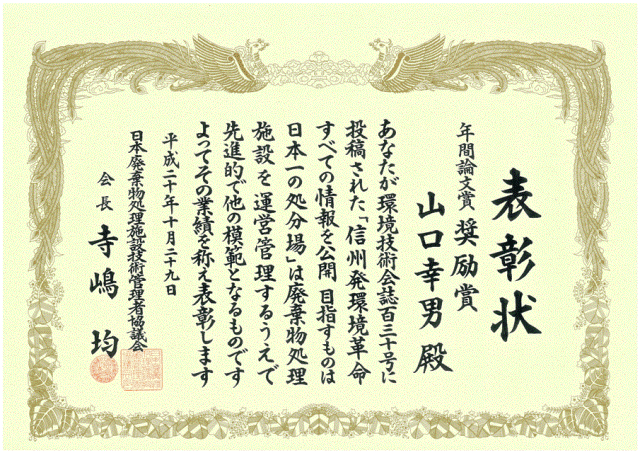 表彰状
年間論文賞 奨励賞
山口幸男 殿
あなたが環境技術会誌百三十号に
投稿された「信州発環境革命
すべての情報を公開 目指すものは
日本一の処分場」は廃棄物処理
施設を運営管理するうえで
先進的で他の模範となるものです
よってその業績を称え表彰します
平成二十年十月二十九日
日本廃棄物処理施設技術管理者協議会
会長 寺嶋 均